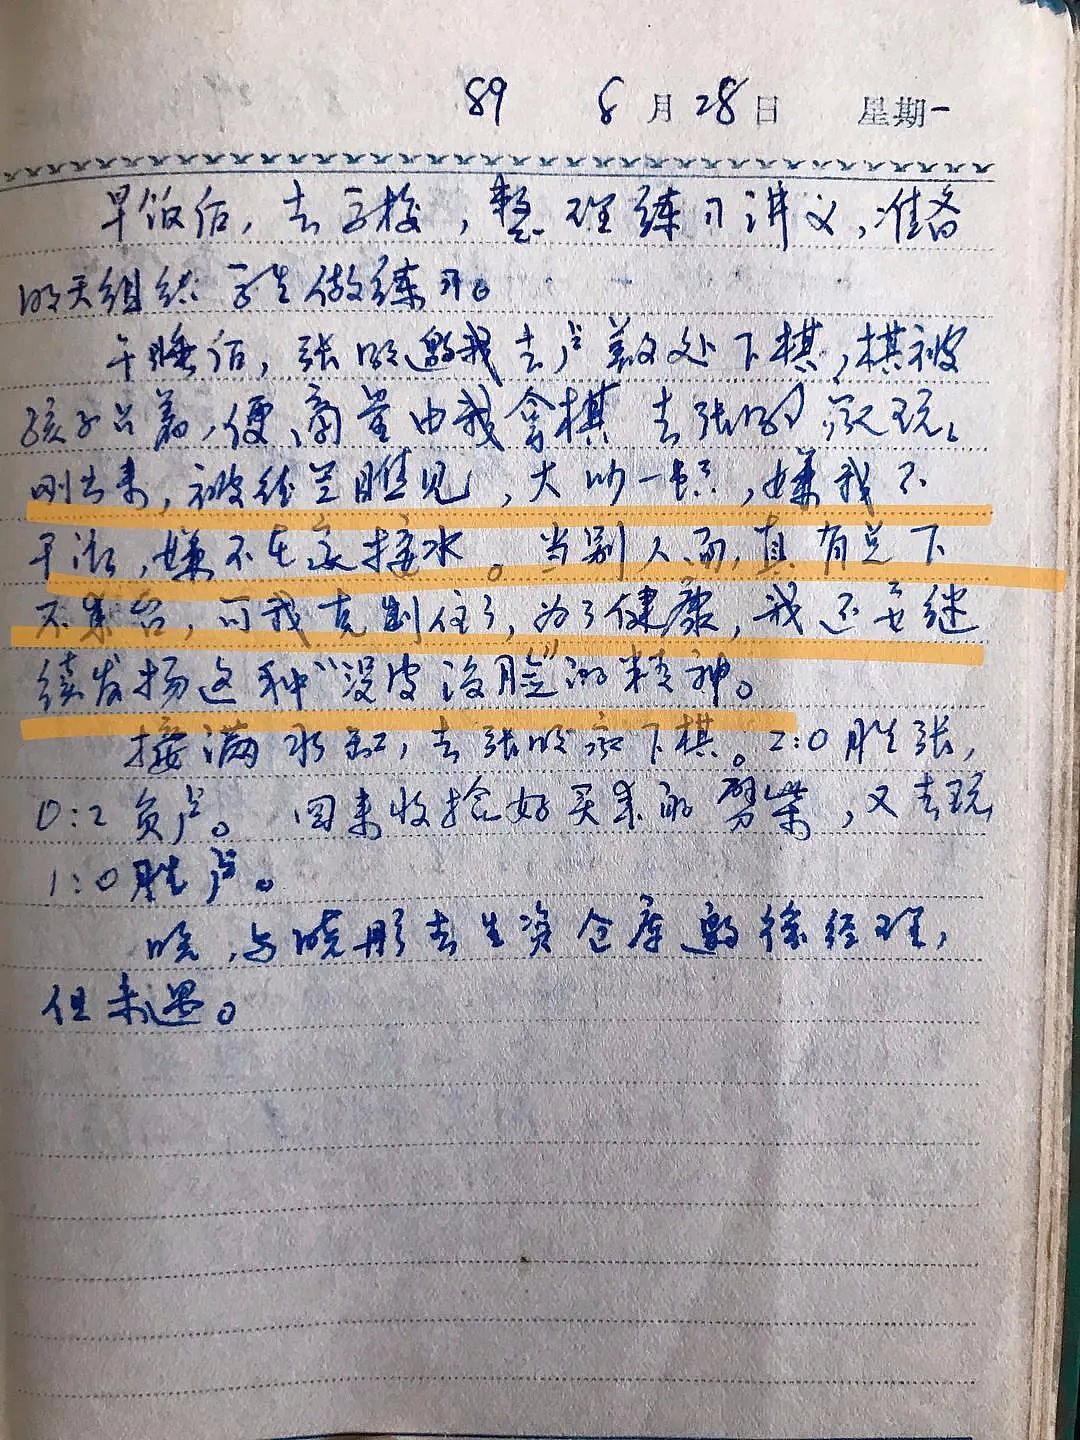 89 8月28日 星期一
早饭后,去学校,整理练习讲义,准备
明天组织学生做练习。
午睡后,张明邀我去卢处下棋,棋被
孩子占着,便商量由我拿棋去张明家玩。
刚出来,被桂兰瞧见,大吵一顿,嫌我不
干活,嫌不在家接水。当别人面,真有点下
不来台,可我克制住了,为了健康,我还要继
续发扬这种“没皮没脸”的精神。
接满水缸,去张明家下棋。2:0胜张,
0:2负卢。回来收拾好买来的劈柴,又去玩
1:0胜卢。
晚,与晓彤去生资仓库邀徐经理,
但未遇。